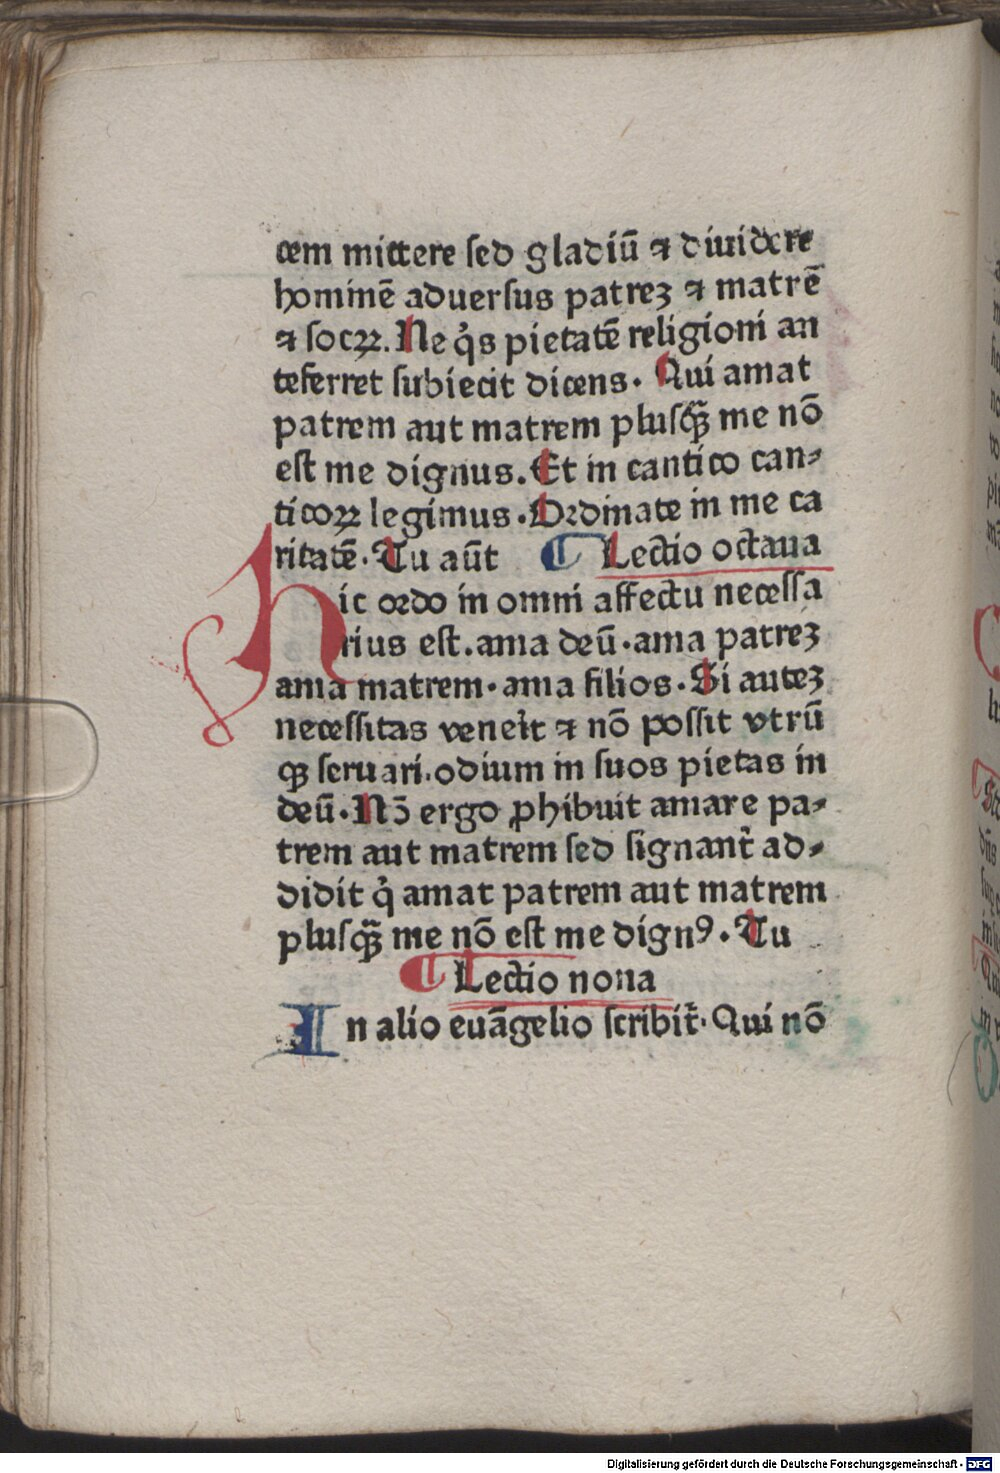 cem mittere sed gladiū ⁊ diuidere
hominē aduersus patreꝫ ⁊ matrē
⁊ socꝝ. Ne q̇s pietatē religioni an
teferret subiecit dicens. Qui amat
patrem aut matrem plusꝙ̄ me nō
est me dignus. Et in cantico can⸗
ticoꝝ legimus. Ordinate in me ca
ritatē. Tu aūt ¶ Lectio octaua
Hic ordo in omni affectu necessa
rius est. ama deū. ama patreꝫ
ama matrem. ama filios. Si auteꝫ
necessitas venerit ⁊ nō possit vtrū
ꝙ seruari. odium in suos pietas in
deū. Nō ergo ꝓhibuit amare pa⸗
trem aut matrem sed signant̉ ad⸗
didit q̇ amat patrem aut matrem
plusꝙ̄ me nō est me dignꝰ. Tu
¶ Lectio nona
In alio euāgelio scribit̉. Qui nō
Digitalisierung gefördert durch die Deutsche Forschungsgemeinschaft - DFG